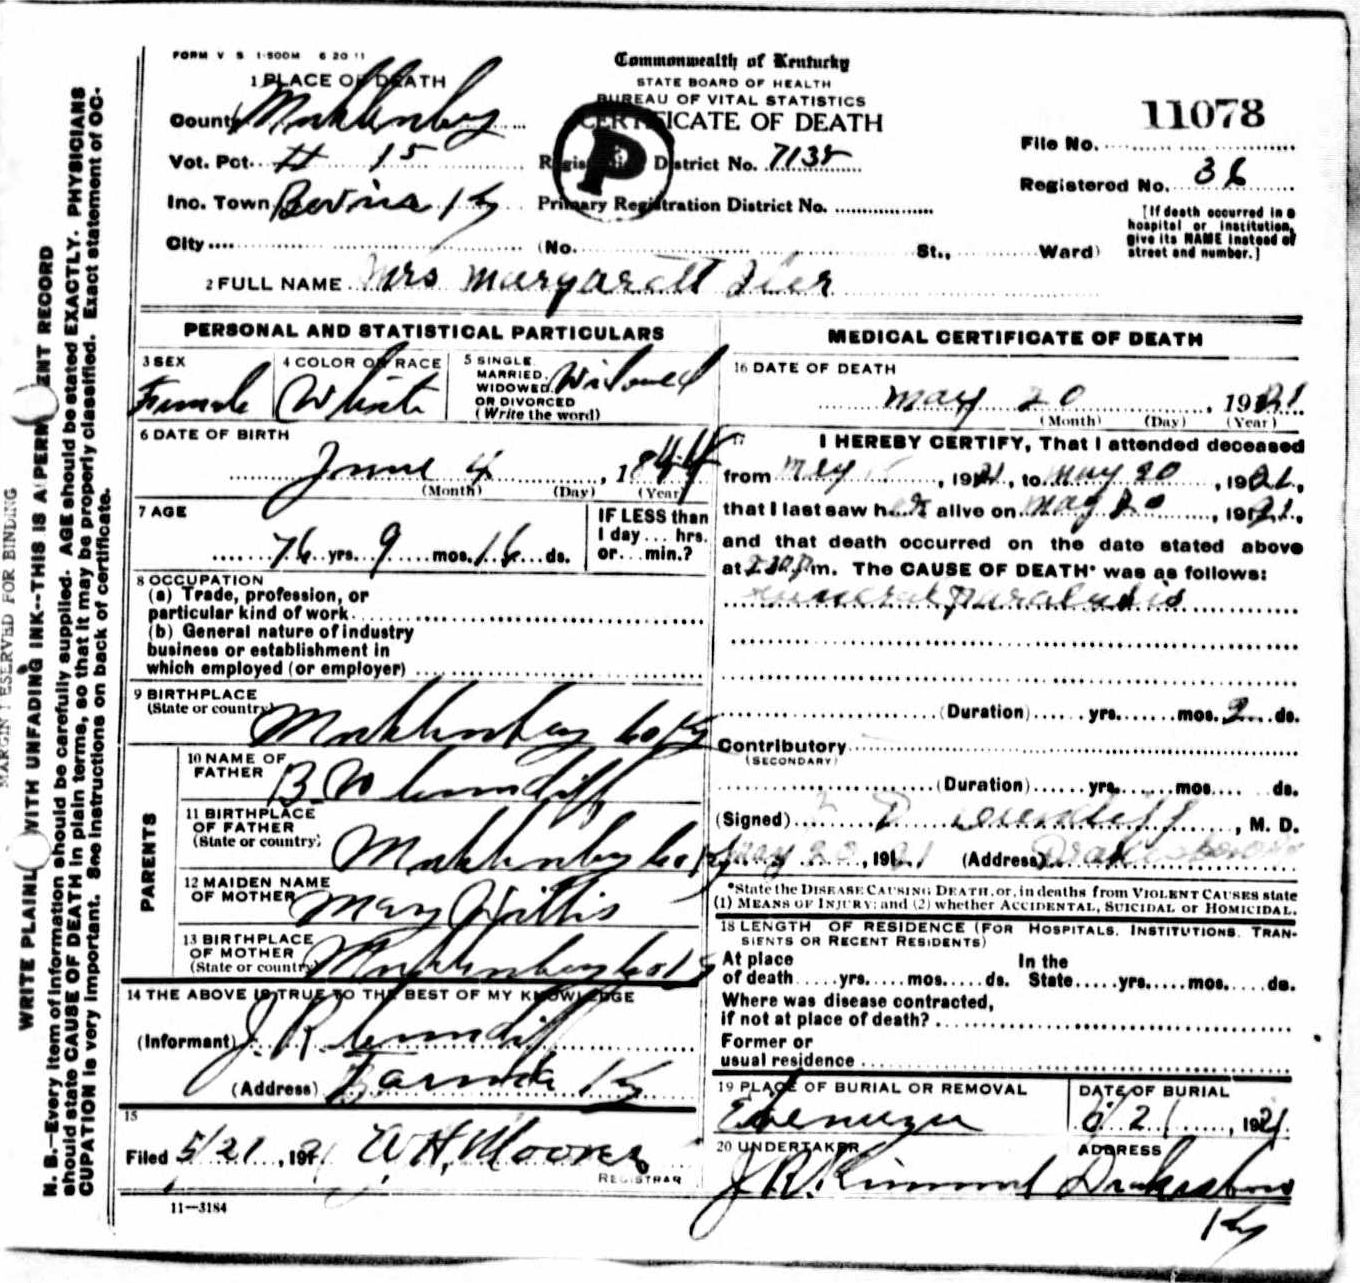 FORM V S 1-500M 6 20 11
Commonwealth of Kentucky
STATE BOARD OF HEALTH
BUREAU OF VITAL STATISTICS
CERTIFICATE OF DEATH
1 PLACE OF DEATH
County Muhlenberg
Vot. Pct. # 15
Inc. Town Ky
City
Registration District No. 7135
Primary Registration District No.
(No. St., Ward)
P
11078
File No.
Registered No. 36
[If death occurred in a
hospital or institution,
give its NAME instead of
street and number.]
2 FULL NAME Mrs Margarett Iler
PERSONAL AND STATISTICAL PARTICULARS
3 SEX
Female
4 COLOR OR RACE
White
5 SINGLE,
MARRIED,
WIDOWED,
OR DIVORCED
(Write the word)
Widowed
6 DATE OF BIRTH
June 4, 1844
(Month) (Day) (Year)
7 AGE
76 yrs. 9 mos. 16 ds.
IF LESS than
1 day... hrs.
or... min.?
8 OCCUPATION
(a) Trade, profession, or
particular kind of work
(b) General nature of industry
business or establishment in
which employed (or employer)
9 BIRTHPLACE
(State or country)
Muhlenberg Co Ky
PARENTS
10 NAME OF
FATHER
B. W Cundiff
11 BIRTHPLACE
OF FATHER
(State or country)
Muhlenberg Co Ky
12 MAIDEN NAME
OF MOTHER
Mary Hillis
13 BIRTHPLACE
OF MOTHER
(State or country)
Muhlenberg Co Ky
14 THE ABOVE IS TRUE TO THE BEST OF MY KNOWLEDGE
(Informant) J. R Cundiff
(Address) Ky
15
Filed 5/21, 1921 W H. Moore
REGISTRAR
11—3184
MEDICAL CERTIFICATE OF DEATH
16 DATE OF DEATH
May 20, 1921
(Month) (Day) (Year)
17 I HEREBY CERTIFY, That I attended deceased
from May, 1921, to May 20, 1921,
that I last saw her alive on May 20, 1921,
and that death occurred on the date stated above
at m. The CAUSE OF DEATH* was as follows:
General paralysis
(Duration) yrs. mos. 2 ds.
Contributory
(SECONDARY)
(Duration) yrs. mos. ds.
(Signed) D Cundiff, M. D.
May 20, 1921 (Address) Drakesboro Ky
*State the DISEASE CAUSING DEATH, or, in deaths from VIOLENT CAUSES state
(1) MEANS OF INJURY; and (2) whether ACCIDENTAL, SUICIDAL or HOMICIDAL.
18 LENGTH OF RESIDENCE (FOR HOSPITALS, INSTITUTIONS, TRAN-
SIENTS OR RECENT RESIDENTS)
At place In the
of death yrs. mos. ds. State yrs. mos. ds.
Where was disease contracted,
if not at place of death?
Former or
usual residence
19 PLACE OF BURIAL OR REMOVAL
Ebenezer
DATE OF BURIAL
5/21, 1921
20 UNDERTAKER
J R. Kimmel
ADDRESS
Drakesboro
Ky
MARGIN RESERVED FOR BINDING
WRITE PLAINLY WITH UNFADING INK--THIS IS A PERMANENT RECORD
N. B.—Every item of information should be carefully supplied. AGE should be stated EXACTLY. PHYSICIANS
should state CAUSE OF DEATH in plain terms, so that it may be properly classified. Exact statement of OC-
CUPATION is very important. See instructions on back of certificate.